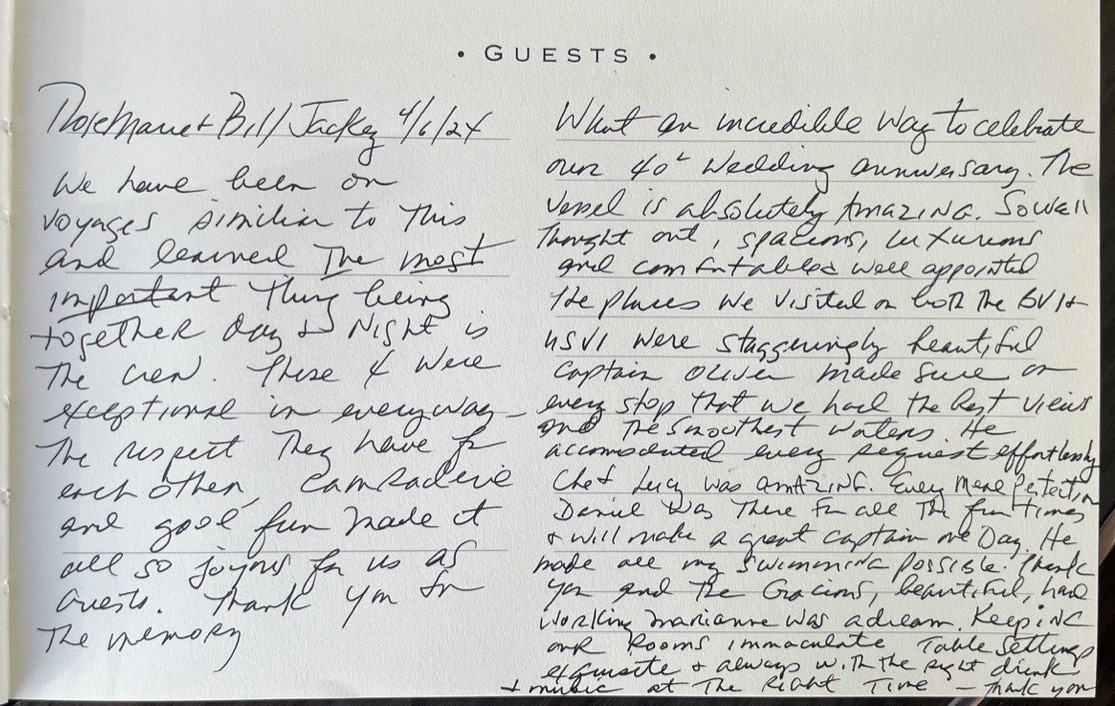 • GUESTS •
RoseMarie + Bill Jackey 4/6/24
We have been on
voyages similiar to This
and learned The most
important Thing being
together day & Night is
The crew. These 4 were
exceptional in everyway –
The respect They have for
each other, camraderie
and good fun made it
all so joyous for us as
Guests. Thank you for
The memory
What an incredible Way to celebrate
our 40th Wedding anniversary. The
Vessel is absolutely AmazING. So well
Thought out, spacious, luxurious
and comfortable & well appointed
The places We Visited on both The BVI +
USVI were staggeringly beautiful
Captain Oliver made sure on
every stop That we had The best views
and The smoothest waters. He
accomodated every request effortlessly
Chef Lucy was amAZING. Every Meal Perfection
Daniel Was There for all The fun Times
+ will make a great captain one Day. He
made all my swimming possible. Thank
you and The Gracious, beautiful, hard
working Marianne Was a dream. KeepING
our Rooms immaculate Table Settings
exquisite + always with the right drink
+ music at The Right Time – Thank you